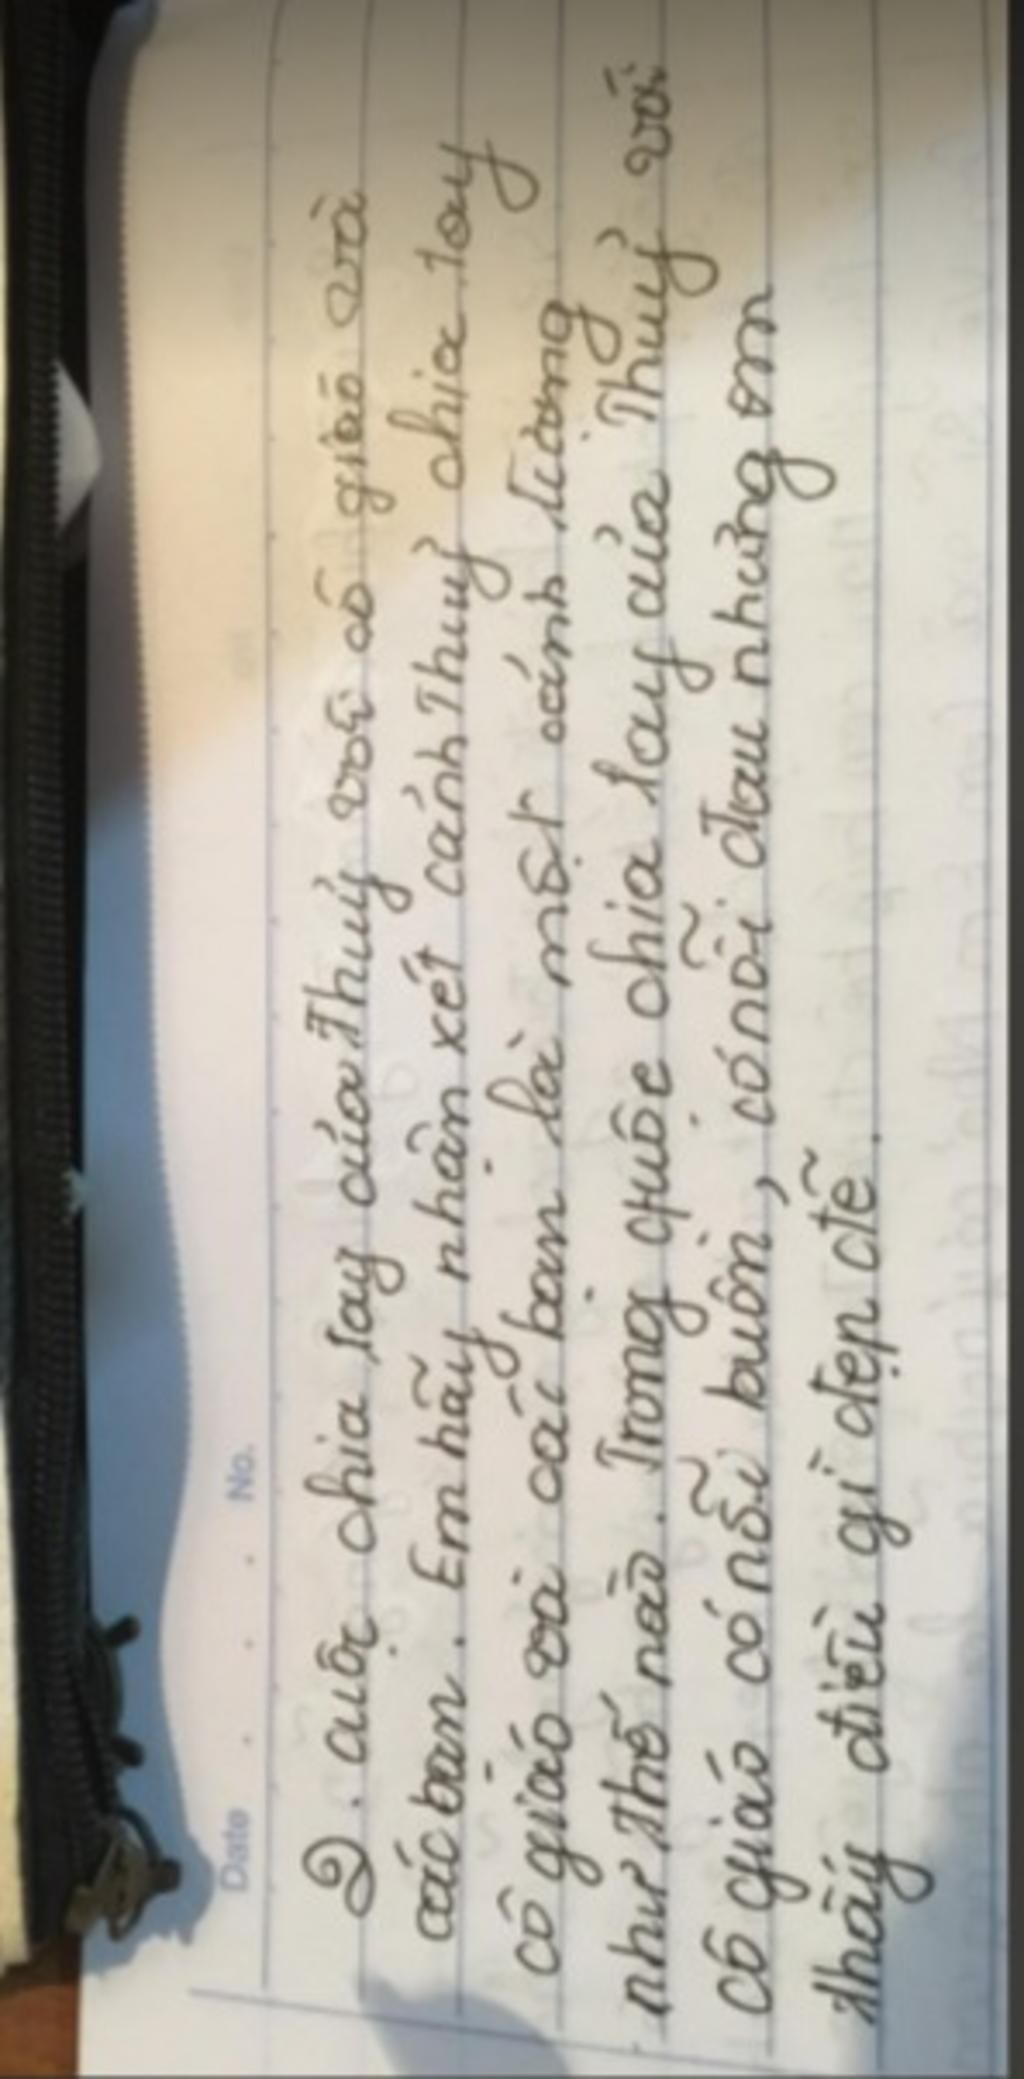 Date . . . No.
2. Cuộc chia tay của Thuỷ với cô giáo và
các bạn. Em hãy nhận xét cảnh Thuỷ chia tay
cô giáo và các bạn là một cảnh tượng
như thế nào. Trong cuộc chia tay của Thuỷ với
cô giáo có nỗi buồn, có nỗi đau nhưng em
thấy điều gì đẹp đẽ.